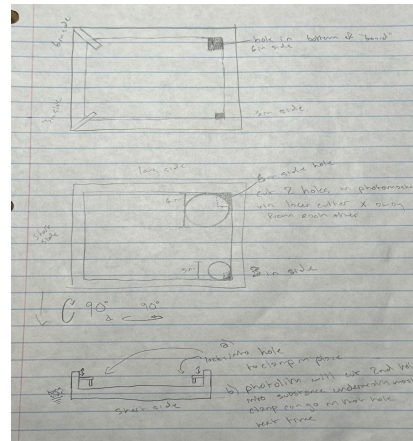 6in side
hole in bottom of "board"
6in side
3in side
3in side
long side
6in side hole
6in
cut 2 holes in photomask
via laser cutter X away
from each other
short
side
3in
3 in side
90°
90°
a)
into hole
to clamp in place
b) photolith will cut 2nd hole
into substrate underneath mask
clamp can go in that hole
next time
short side